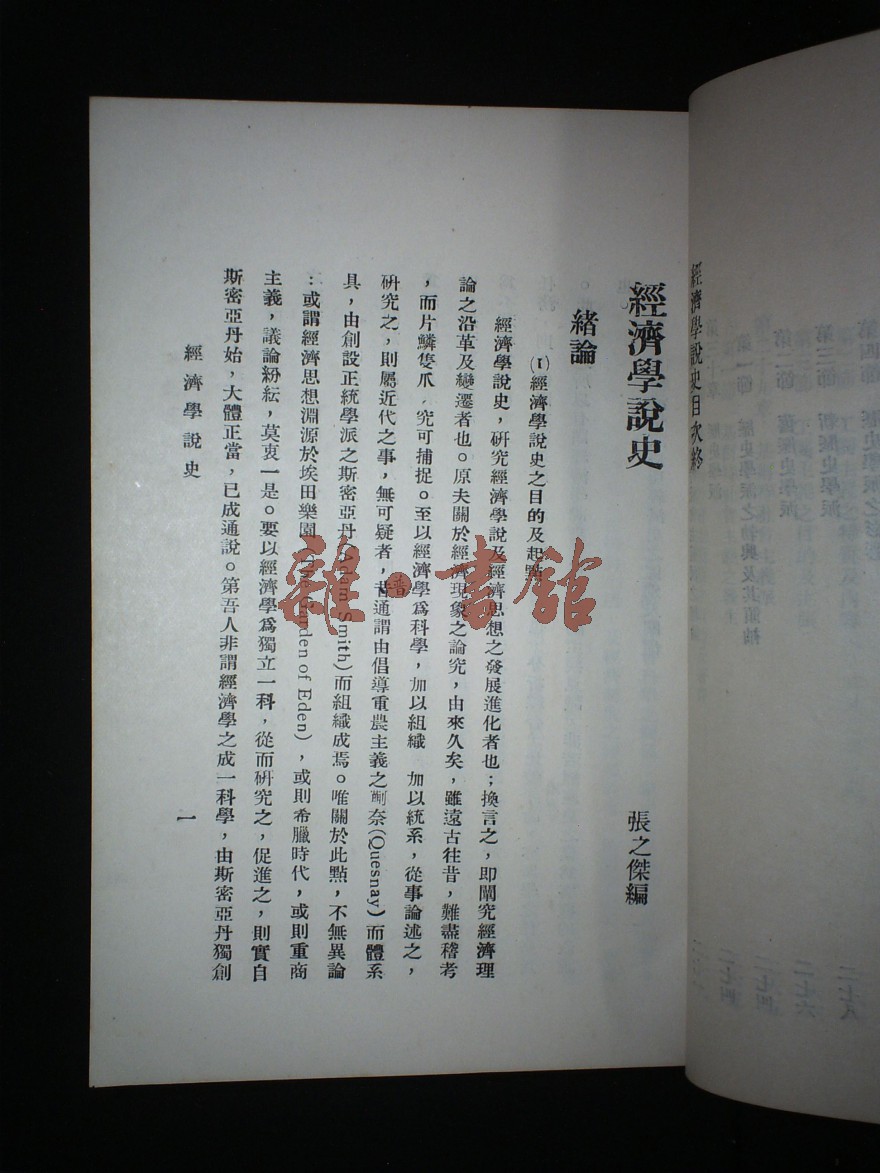 經濟學說史目次終
經濟學說史
張之傑編
緒論
(1)經濟學說史之目的及起點
經濟學說史，研究經濟學說及經濟思想之發展進化者也；換言之，即闡究經濟理
論之沿革及變遷者也。原夫關於經濟現象之論究，由來久矣，雖遠古往昔，難盡稽考
，而片鱗隻爪，究可捕捉。至以經濟學爲科學，加以組織　加以統系，從事論述之，
研究之，則屬近代之事，無可疑者，普通謂由倡導重農主義之奈(Quesnay)而體系
具，由創設正統學派之斯密亞丹(Adam Smith)而組織成焉。唯關於此點，不無異論
：或謂經濟思想淵源於埃田樂園(The Garden of Eden)，或則希臘時代，或則重商
主義，議論紛紜，莫衷一是。要以經濟學爲獨立一科，從而研究之，促進之，則實自
斯密亞丹始，大體正當，已成通說。第吾人非謂經濟學之成一科學，由斯密亞丹獨創
經濟學說史
一
雜·書館